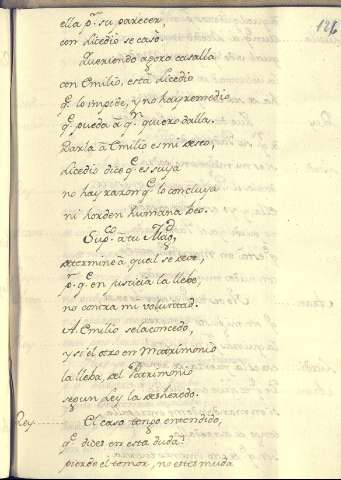 126
ella pʳ. su parecer,
con Licedio se casò.
Queriendo agora casalla
con Emilio, està Licedio
qᵉ. lo impide, y no hay remedio
qᵉ. pueda à qⁿ. quiero dalla.
Darla à Emilio es mi deseo,
Licedio dice qᵉ. es suya
no hay razon qᵉ. lo concluya
ni horden humana beo.
Supᶜᵒ. à tu Magᵈ.
determine à qual se debe,
pʳ. qᵉ. en justicia la llebe,
no contra mi voluntad.
A Emilio se la concedo,
y si el otro en Matrimonio
la lleba, del Patrimonio
segun Ley la desheredo.
Rey....... El caso tengo entendido,
qᵉ. dices en esta duda?
pierde el temor, no estes muda